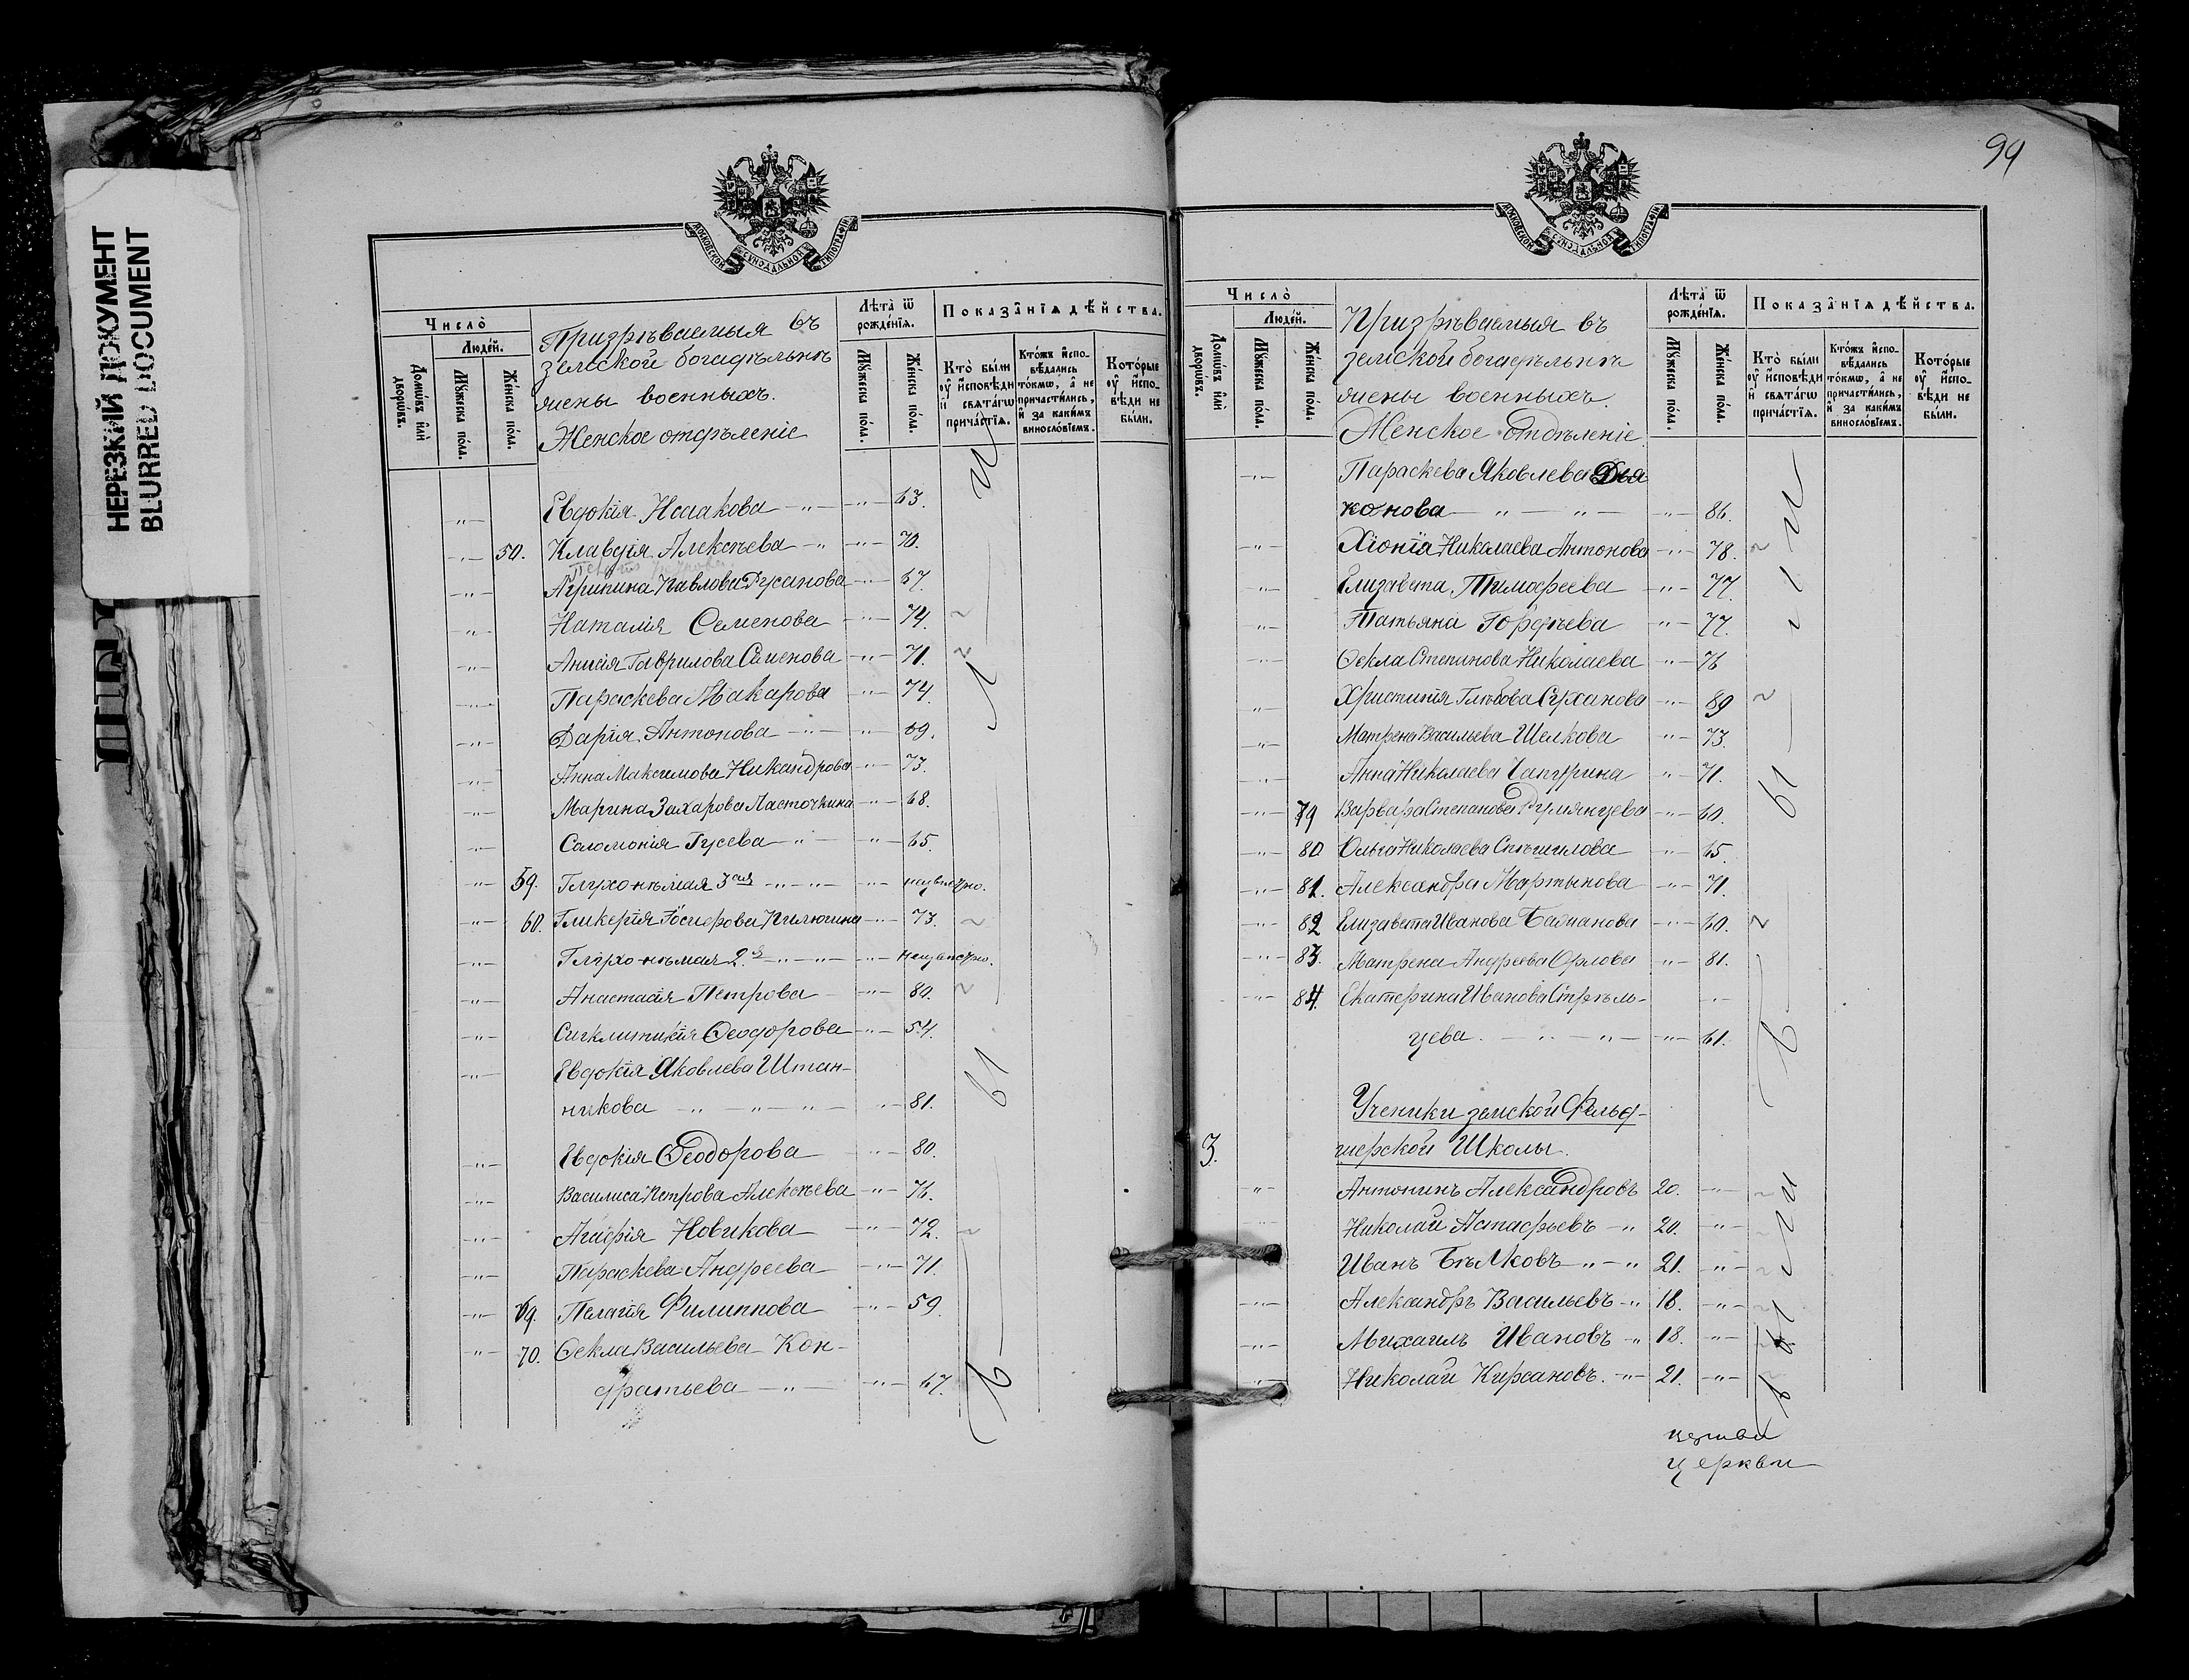 НЕРЕЗКИЙ ДОКУМЕНТ
BLURRED DOCUMENT
МОСКОВСКОЙ СѴНОДАЛЬНОЙ ТИПОГРАФІИ
Число̀
Люде́й.
Домѡ́въ и҆лѝ дворѡ́въ.
Мꙋ́жеска по́ла.
Же́нска по́ла.
Призрѣваемыя въ
земской богадѣльнѣ
жены военныхъ.
Женское отдѣленіе
Лѣ́та ѿ рожде́нїѧ.
Мꙋ́жеска по́ла.
Же́нска по́ла.
Показа̑нїѧ дѣ́йства.
Кто̀ бы́ли оу҆ и҆́сповѣди и҆ свѧта́гѡ прича́стїѧ.
Кто́жъ и҆спо-вѣ́дались то́кмѡ, а҆ не причасти́лись, и҆ за каки́мъ виносло́вїемъ.
Кото́рые оу҆ и҆́спо-вѣди не бы́ли.
-„- Евдокія Исаакова -„- -„- 63.
-„- 50. Клавдія Алексѣева -„ -„- 70.
-„- Агрипина Павлова Русанова -„- 67.
-„- Наталія Семенова -„- 74.
-„- Анисія Гаврилова Семенова -„- 71.
-„- Параскева Макарова -„- 74.
-„- Дарія Антонова -„- -„ 69.
-„- Анна Максимова Никандрова -„- 73.
-„- Марина Захарова Ласточкина -„- 68.
-„- Саломонія Гусева -„- -„- 65.
-„- 59. Глухо-нѣмая 3ая -„-„- -„- неизвѣстно.
-„- 60. Гликерія Іосифова Килюшина -„- 73.
-„- Глухо-нѣмая 2.я -„-„- -„- неизвѣстно.
-„- Анастасія Петрова -„- 80.
-„- Сигклитикія Ѳеодорова -„- 54.
-„- Евдокія Яковлева Штан-
никова -„-„-„- -„- 81.
-„- Евдокія Ѳеодорова -„- 80.
-„- Василиса Петрова Алексѣева -„- 76.
-„- Агафія Новикова -„- 72.
-„- Параскева Андреева -„- 71.
-„- 69. Пелагія Филиппова -„- 59.
-„- 70. Ѳекла Васильева Кон-
дратьева -„- -„- 67.
99
МОСКОВСКОЙ СѴНОДАЛЬНОЙ ТИПОГРАФІИ
Число̀
Люде́й.
Домѡ́въ и҆лѝ дворѡ́въ.
Мꙋ́жеска по́ла.
Же́нска по́ла.
Призрѣваемыя въ
земской богадѣльнѣ
жены военныхъ.
Женское отдѣленіе
Лѣ́та ѿ рожде́нїѧ.
Мꙋ́жеска по́ла.
Же́нска по́ла.
Показа̑нїѧ дѣ́йства.
Кто̀ бы́ли оу҆ и҆́сповѣди и҆ свѧта́гѡ прича́стїѧ.
Кто́жъ и҆спо-вѣ́дались то́кмѡ, а҆ не причасти́лись, и҆ за каки́мъ виносло́вїемъ.
Кото́рые оу҆ и҆́спо-вѣди не бы́ли.
-„- Параскева Яковлева Дья
конова -„-„- -„- 86.
-„- Хіонія Николаева Антонова -„- 78.
-„- Елизавета Тимофеева -„- 77.
-„- Татьяна Гордѣева -„- 77.
-„- Ѳекла Степанова Николаева -„- 76
-„- Христинія Глѣбова Суханова -„- 89
-„- Матрена Васильева Шелкова -„- 73.
-„- Анна Николаева Чапурина -„- 71.
-„- 79 Варвара Степанова Румянцева -„- 60.
-„- 80 Ольга Николаева Спѣшилова -„- 65.
-„- 81. Александра Мартынова -„- 71.
-„- 82 Елизавета Иванова Балманова -„- 60.
-„- 83. Матрена Андреева Орлова -„- 81.
-„- 84. Екатерина Иванова Стрѣль-
цева. -„-„- -„- 61.
Ученики земской Фельд-
3. шерской Школы.
-„- Антонинъ Александровъ 20. -„-
Николай Астафьевъ -„ 20. -„-
Иванъ Бѣляковъ -„-„ 21. -„-
-„- Александръ Васильевъ -„ 18. -„-
-„- Михаилъ Ивановъ -„ 18. -„-
-„- Николай Кирсановъ. -„- 21. -„-
церкви